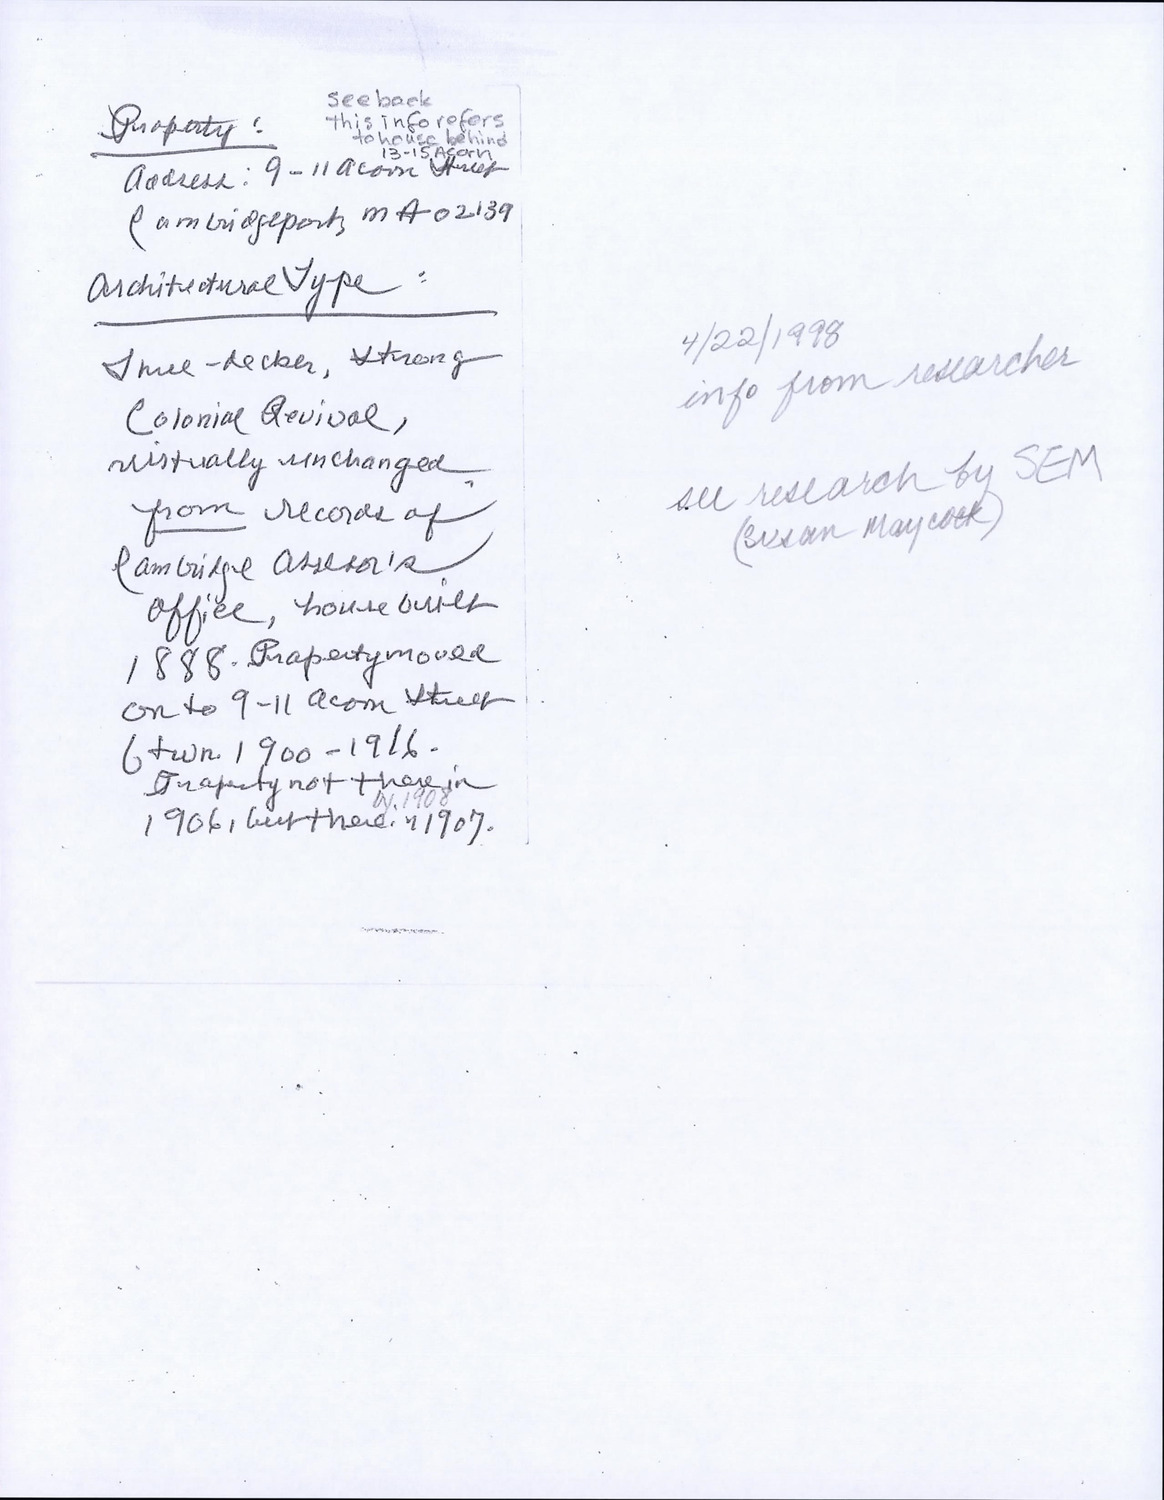 see back
this info refers
to house behind
13-15 Acorn
Property :
Address: 9-11 Acorn Street
Cambridgeport, MA 02139
Architectural Type :
Three-decker, strong
Colonial Revival,
virtually unchanged
from records of
Cambridge Assessor's
Office, house built
1888. Property moved
on to 9-11 Acorn Street
btwn. 1900-1916.
Property not there in
by 1908
1906, but there in 1907.
4/22/1998
info from researcher
see research by SEM
(Susan Maycock)